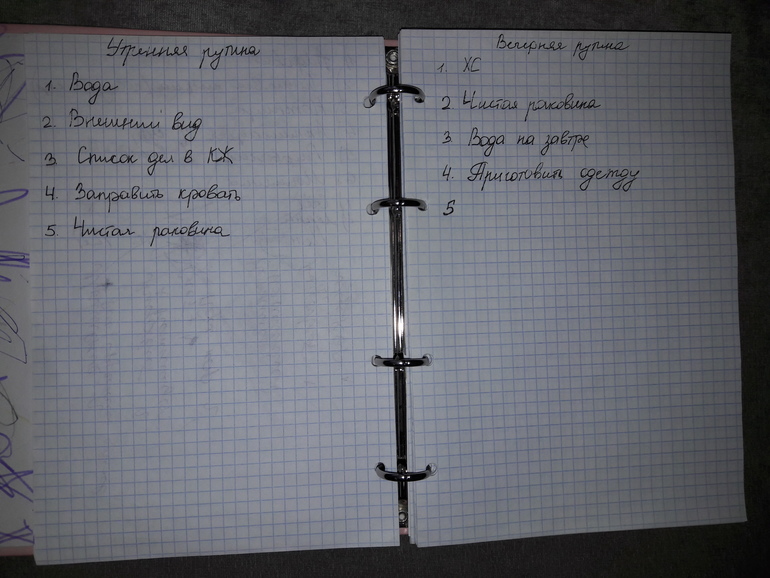 Утренняя рутина
1. Вода
2. Внешний вид
3. Список дел в КЖ
4. Заправить кровать
5. Чистая раковина
Вечерняя рутина
1. ХС
2 Чистая раковина
3. Вода на завтре
4. Приготовить одежду
5